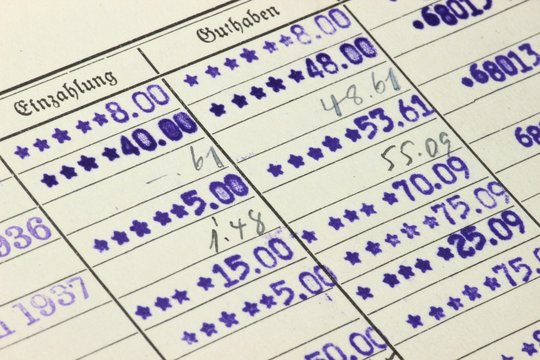 Einzahlung Guthaben
*****8.00 *****8.00 .68013
****40.00 ****48.00 .68013
61 48.61
*****5.00 ****53.61
1.48 55.09
1936 ***15.00 ****70.09
1937 *****5.00 ****75.09
****25.09